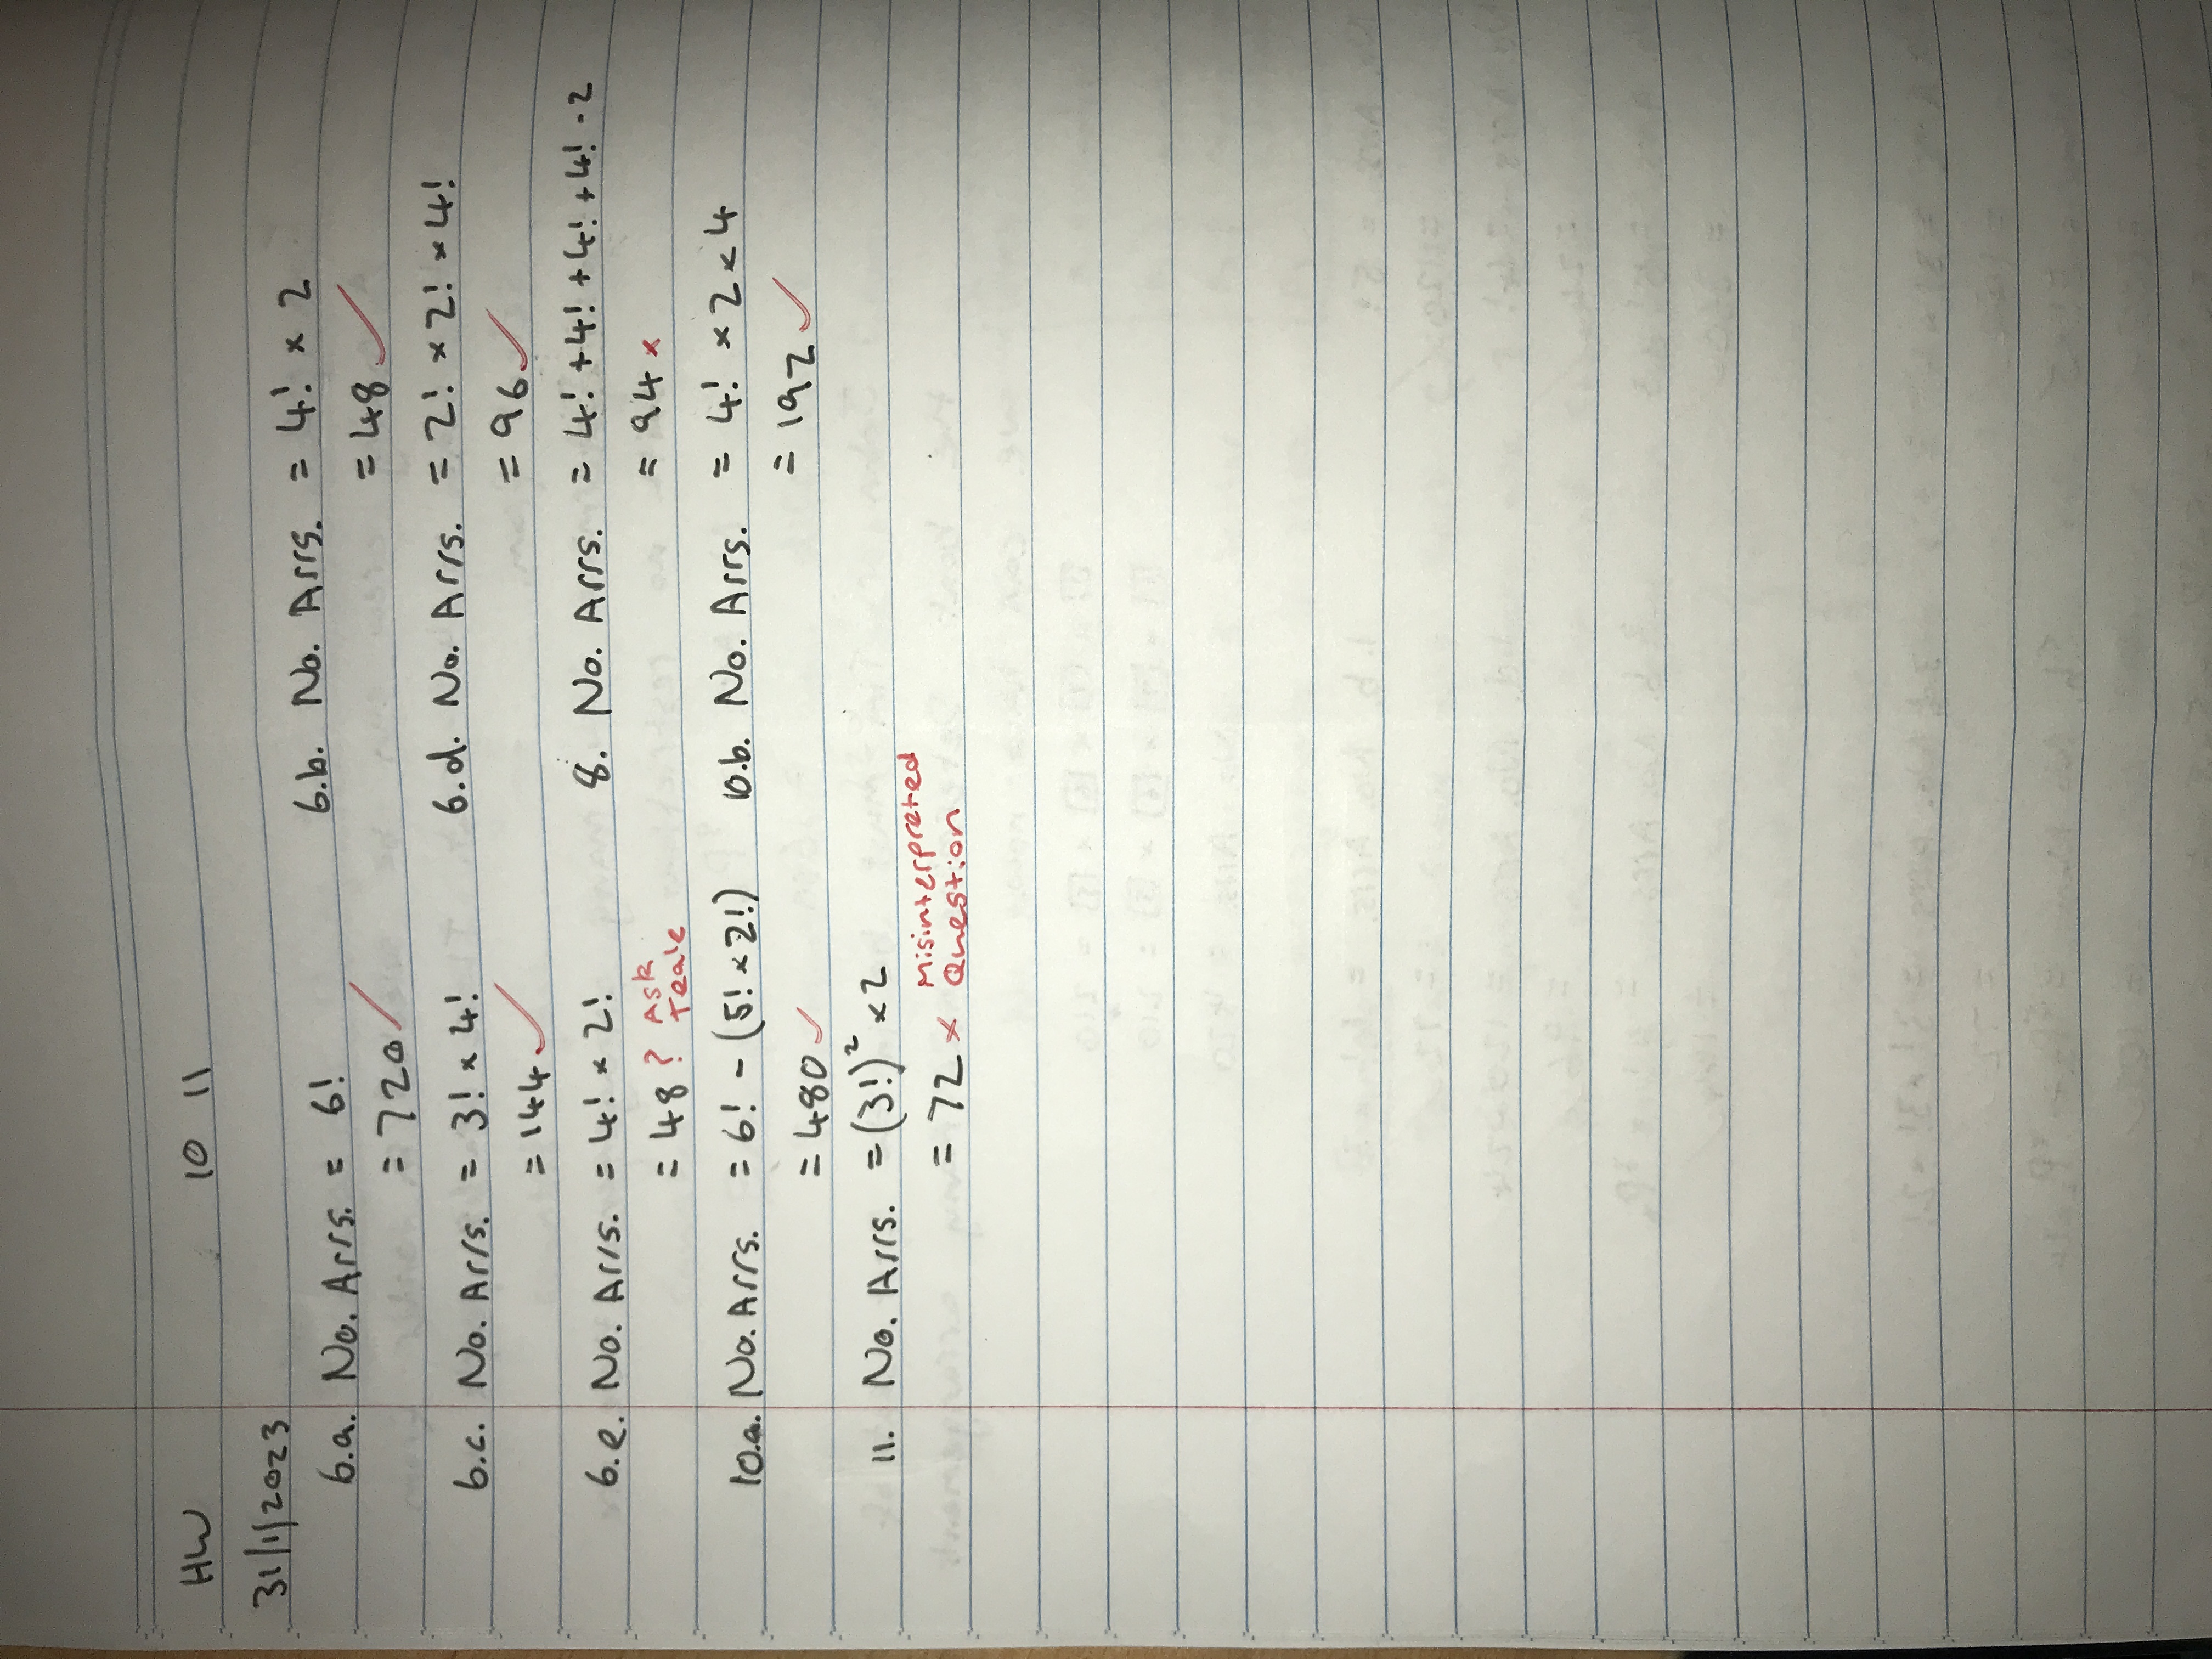 HW 10 11
31/1/2023
6.a. No. Arrs. = 6!
= 720 ✓
6.b. No. Arrs. = 4! × 2
= 48 ✓
6.c. No. Arrs. = 3! × 4!
= 144 ✓
6.d. No. Arrs. = 2! × 2! × 4!
= 96 ✓
6.e. No. Arrs. = 4! × 2!
= 48 ? Ask
Teale
8. No. Arrs. = 4! + 4! + 4! + 4! - 2
= 94 ×
10.a. No. Arrs. = 6! - (5! × 2!)
= 480 ✓
10.b. No. Arrs. = 4! × 2 × 4
= 192 ✓
11. No. Arrs. = (3!)² × 2
= 72 × Misinterpreted
Question